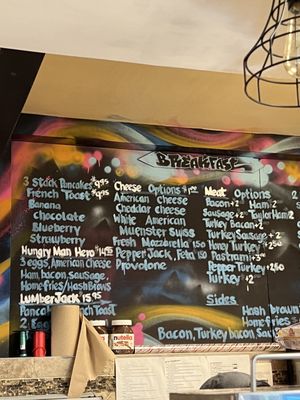 BREAKFAST
3 Stack Pancakes $9.95
French Toast $9.95
Banana
chocolate
Blueberry
Strawberry
Hungry Man Hero $14.95
3 eggs, American Cheese
Ham, bacon, sausage
Home Fries/Hash Browns
LumberJack 15.95
Pancake
2 Eggs
Cheese Options $1.00
American cheese
Cheddar cheese
White American
Muenster Swiss
Fresh Mozzarella 1.50
Pepper Jack, Feta 1.50
Provolone
Meat Options
Bacon +2 Ham +2
Sausage +2 Taylor Ham +2
Turkey Bacon +2
Turkey Sausage +2
Honey Turkey +2.50
Pastrami +3
Pepper Turkey +2.50
Turkey +2
Sides
Hash brown
Home fries
Bacon, Turkey bacon, Sau
nutella